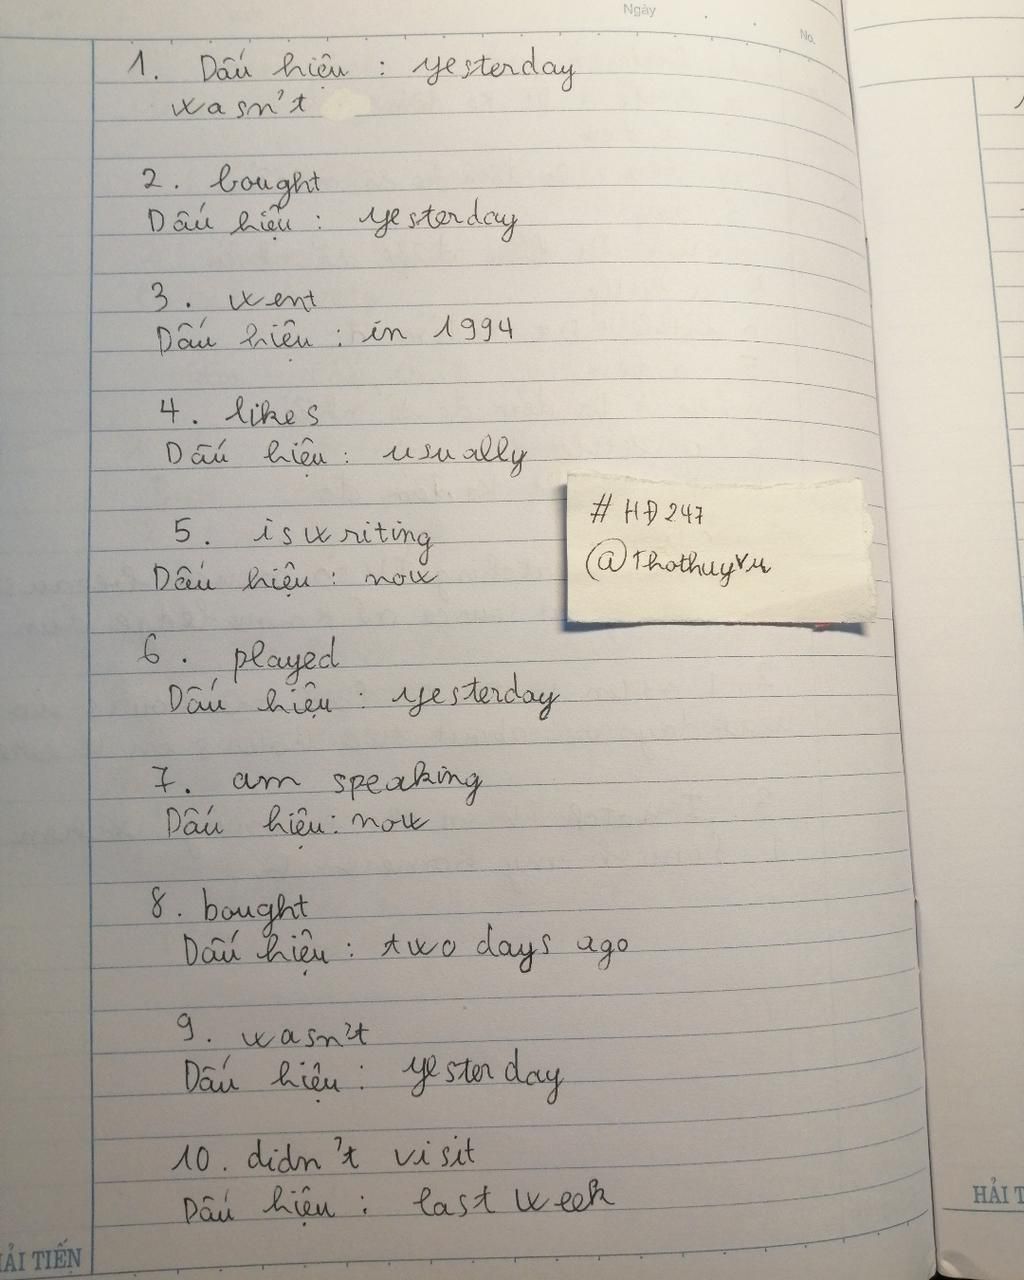 Ngày
No.
1. Dấu hiệu : yesterday
wasn't
2. bought
Dấu hiệu : yesterday
3. went
Dấu hiệu : in 1994
4. likes
Dấu hiệu : usually
5. is writing
Dấu hiệu : now
# HĐ247
@Thothuyvu
6. played
Dấu hiệu : yesterday
7. am speaking
Dấu hiệu : now
8. bought
Dấu hiệu : two days ago
9. wasn't
Dấu hiệu : yesterday
10. didn't visit
Dấu hiệu : last week
HẢI T
ẢI TIẾN